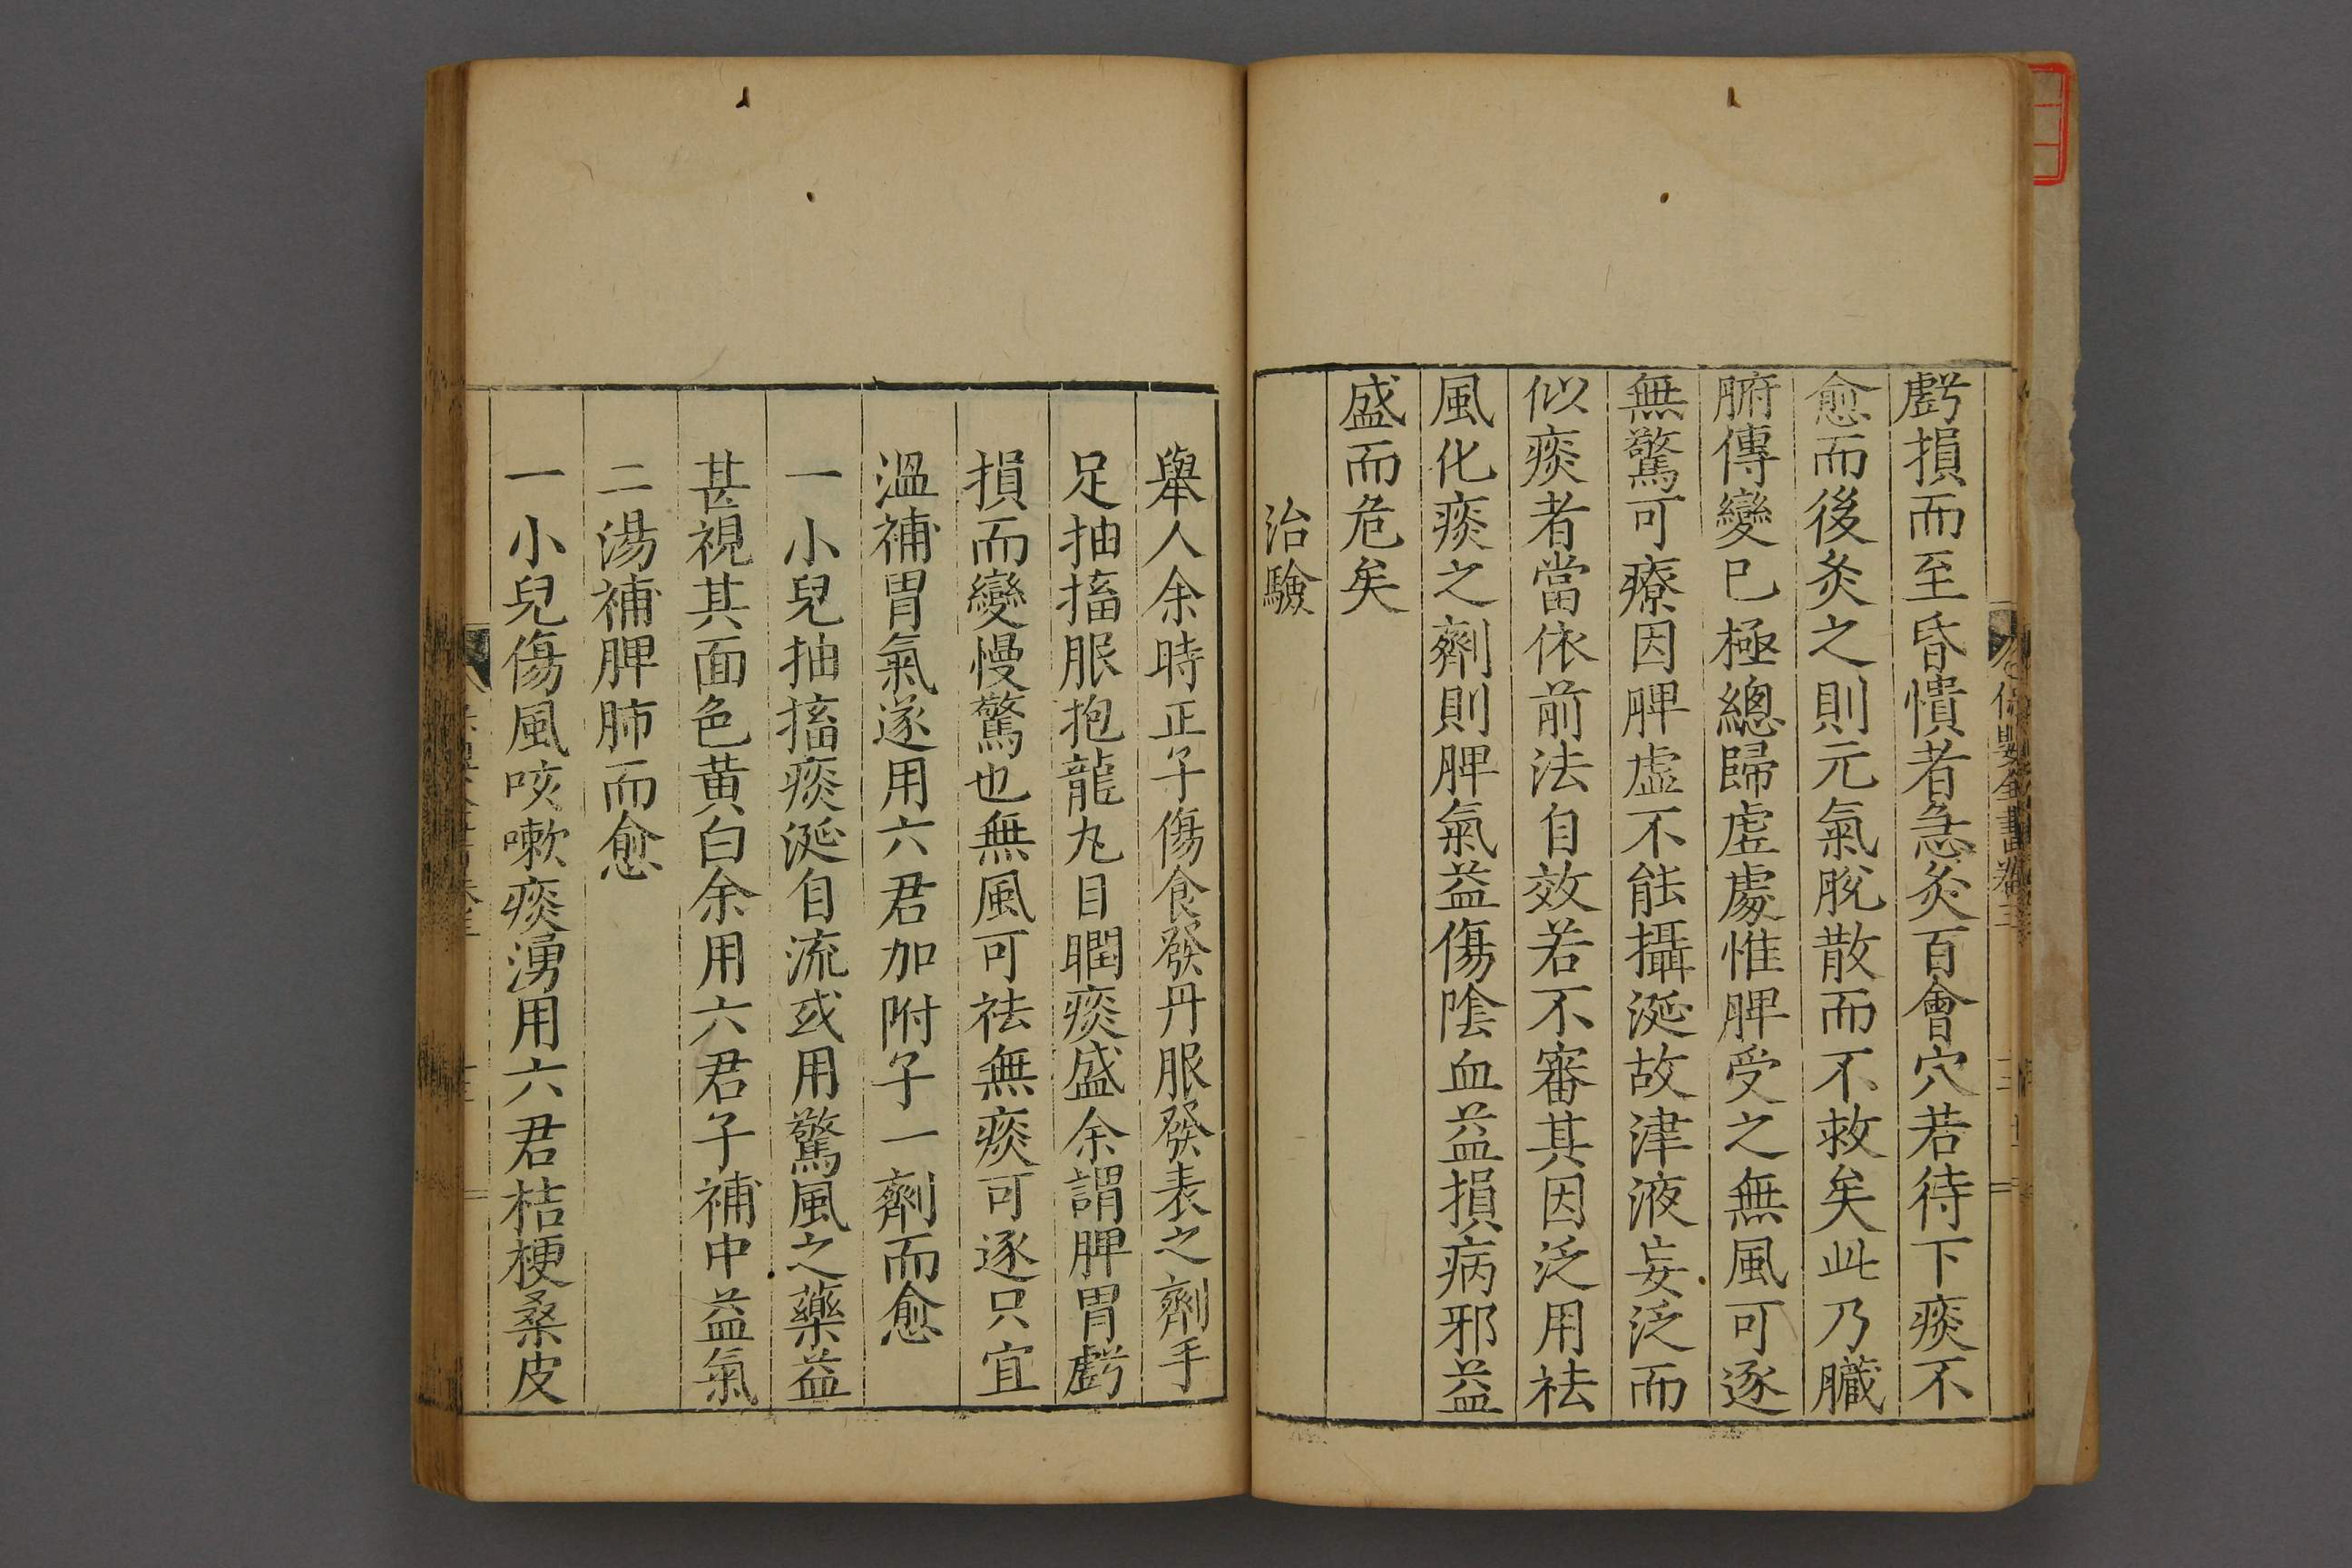 虧損而至昏憒者急灸百會穴若待下痰不
愈而後灸之則元氣脫散而不救矣此乃臟
腑傳變已極總歸虛處惟脾受之無風可逐
無驚可療因脾虛不能攝涎故津液妄泛而
似痰者當依前法自效若不審其因泛用祛
風化痰之劑則脾氣益傷陰血益損病邪益
盛而危矣
治驗
舉人余時正子傷食發丹服發表之劑手
足抽搐服抱龍丸目瞤痰盛余謂脾胃虧
損而變慢驚也無風可祛無痰可逐只宜
溫補胃氣遂用六君加附子一劑而愈
一小兒抽搐痰涎自流或用驚風之藥益
甚視其面色黄白余用六君子補中益氣
二湯補脾肺而愈
一小兒傷風咳嗽痰湧用六君桔梗桑皮